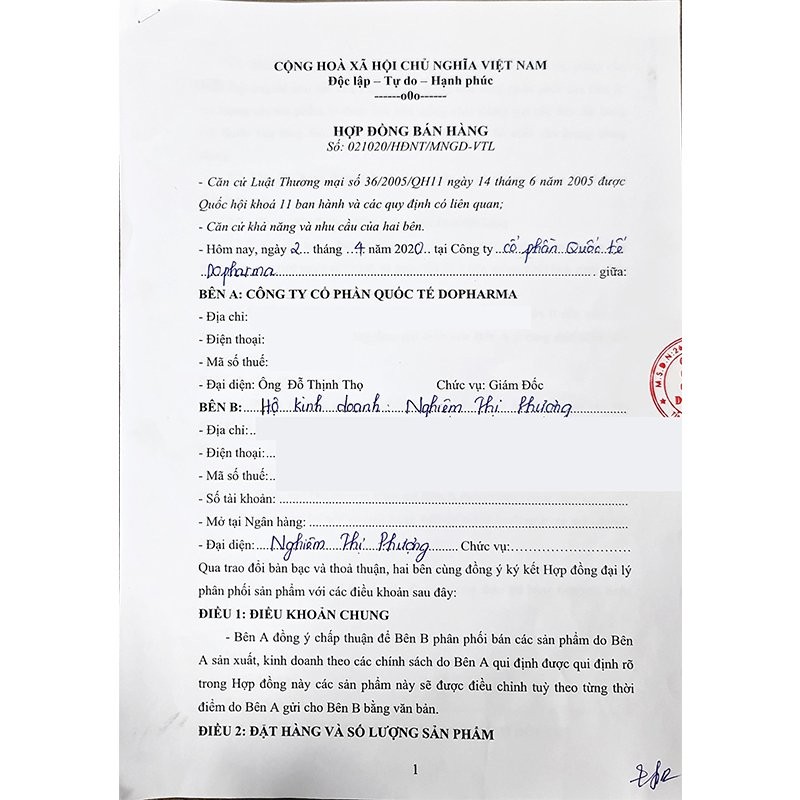 CỘNG HOÀ XÃ HỘI CHỦ NGHĨA VIỆT NAM
Độc lập – Tự do – Hạnh phúc
------o0o------
HỢP ĐỒNG BÁN HÀNG
Số: 021020/HĐNT/MNGD-VTL
- Căn cứ Luật Thương mại số 36/2005/QH11 ngày 14 tháng 6 năm 2005 được
Quốc hội khoá 11 ban hành và các quy định có liên quan;
- Căn cứ khả năng và nhu cầu của hai bên.
- Hôm nay, ngày 2... tháng ..4 năm 2020.. tại Công ty ..cổ phần Quốc tế
..Dopharma.................... giữa:
BÊN A: CÔNG TY CỔ PHẦN QUỐC TẾ DOPHARMA
- Địa chỉ:
- Điện thoại:
- Mã số thuế:
- Đại diện: Ông Đỗ Thịnh Thọ Chức vụ: Giám Đốc
BÊN B:....Hộ kinh doanh: Nghiêm Thị Phương
- Địa chỉ:..
- Điện thoại:...
- Mã số thuế:..
- Số tài khoản: ....................
- Mở tại Ngân hàng: ....................
- Đại diện:....Nghiêm Thị Phượng......... Chức vụ:....................
Qua trao đổi bàn bạc và thoả thuận, hai bên cùng đồng ý ký kết Hợp đồng đại lý
phân phối sản phẩm với các điều khoản sau đây:
ĐIỀU 1: ĐIỀU KHOẢN CHUNG
- Bên A đồng ý chấp thuận để Bên B phân phối bán các sản phẩm do Bên
A sản xuất, kinh doanh theo các chính sách do Bên A qui định được qui định rõ
trong Hợp đồng này các sản phẩm này sẽ được điều chỉnh tuỳ theo từng thời
điểm do Bên A gửi cho Bên B bằng văn bản.
ĐIỀU 2: ĐẶT HÀNG VÀ SỐ LƯỢNG SẢN PHẨM
1